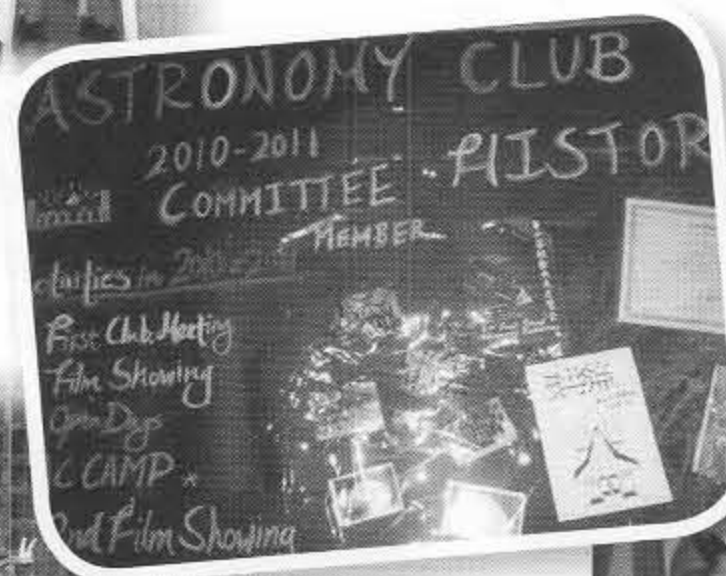 ASTRONOMY CLUB
2010-2011
HISTOR
COMMITTEE
MEMBER
in
First Club Meeting
Film Showing
Open Days
C CAMP
2nd Film Showing